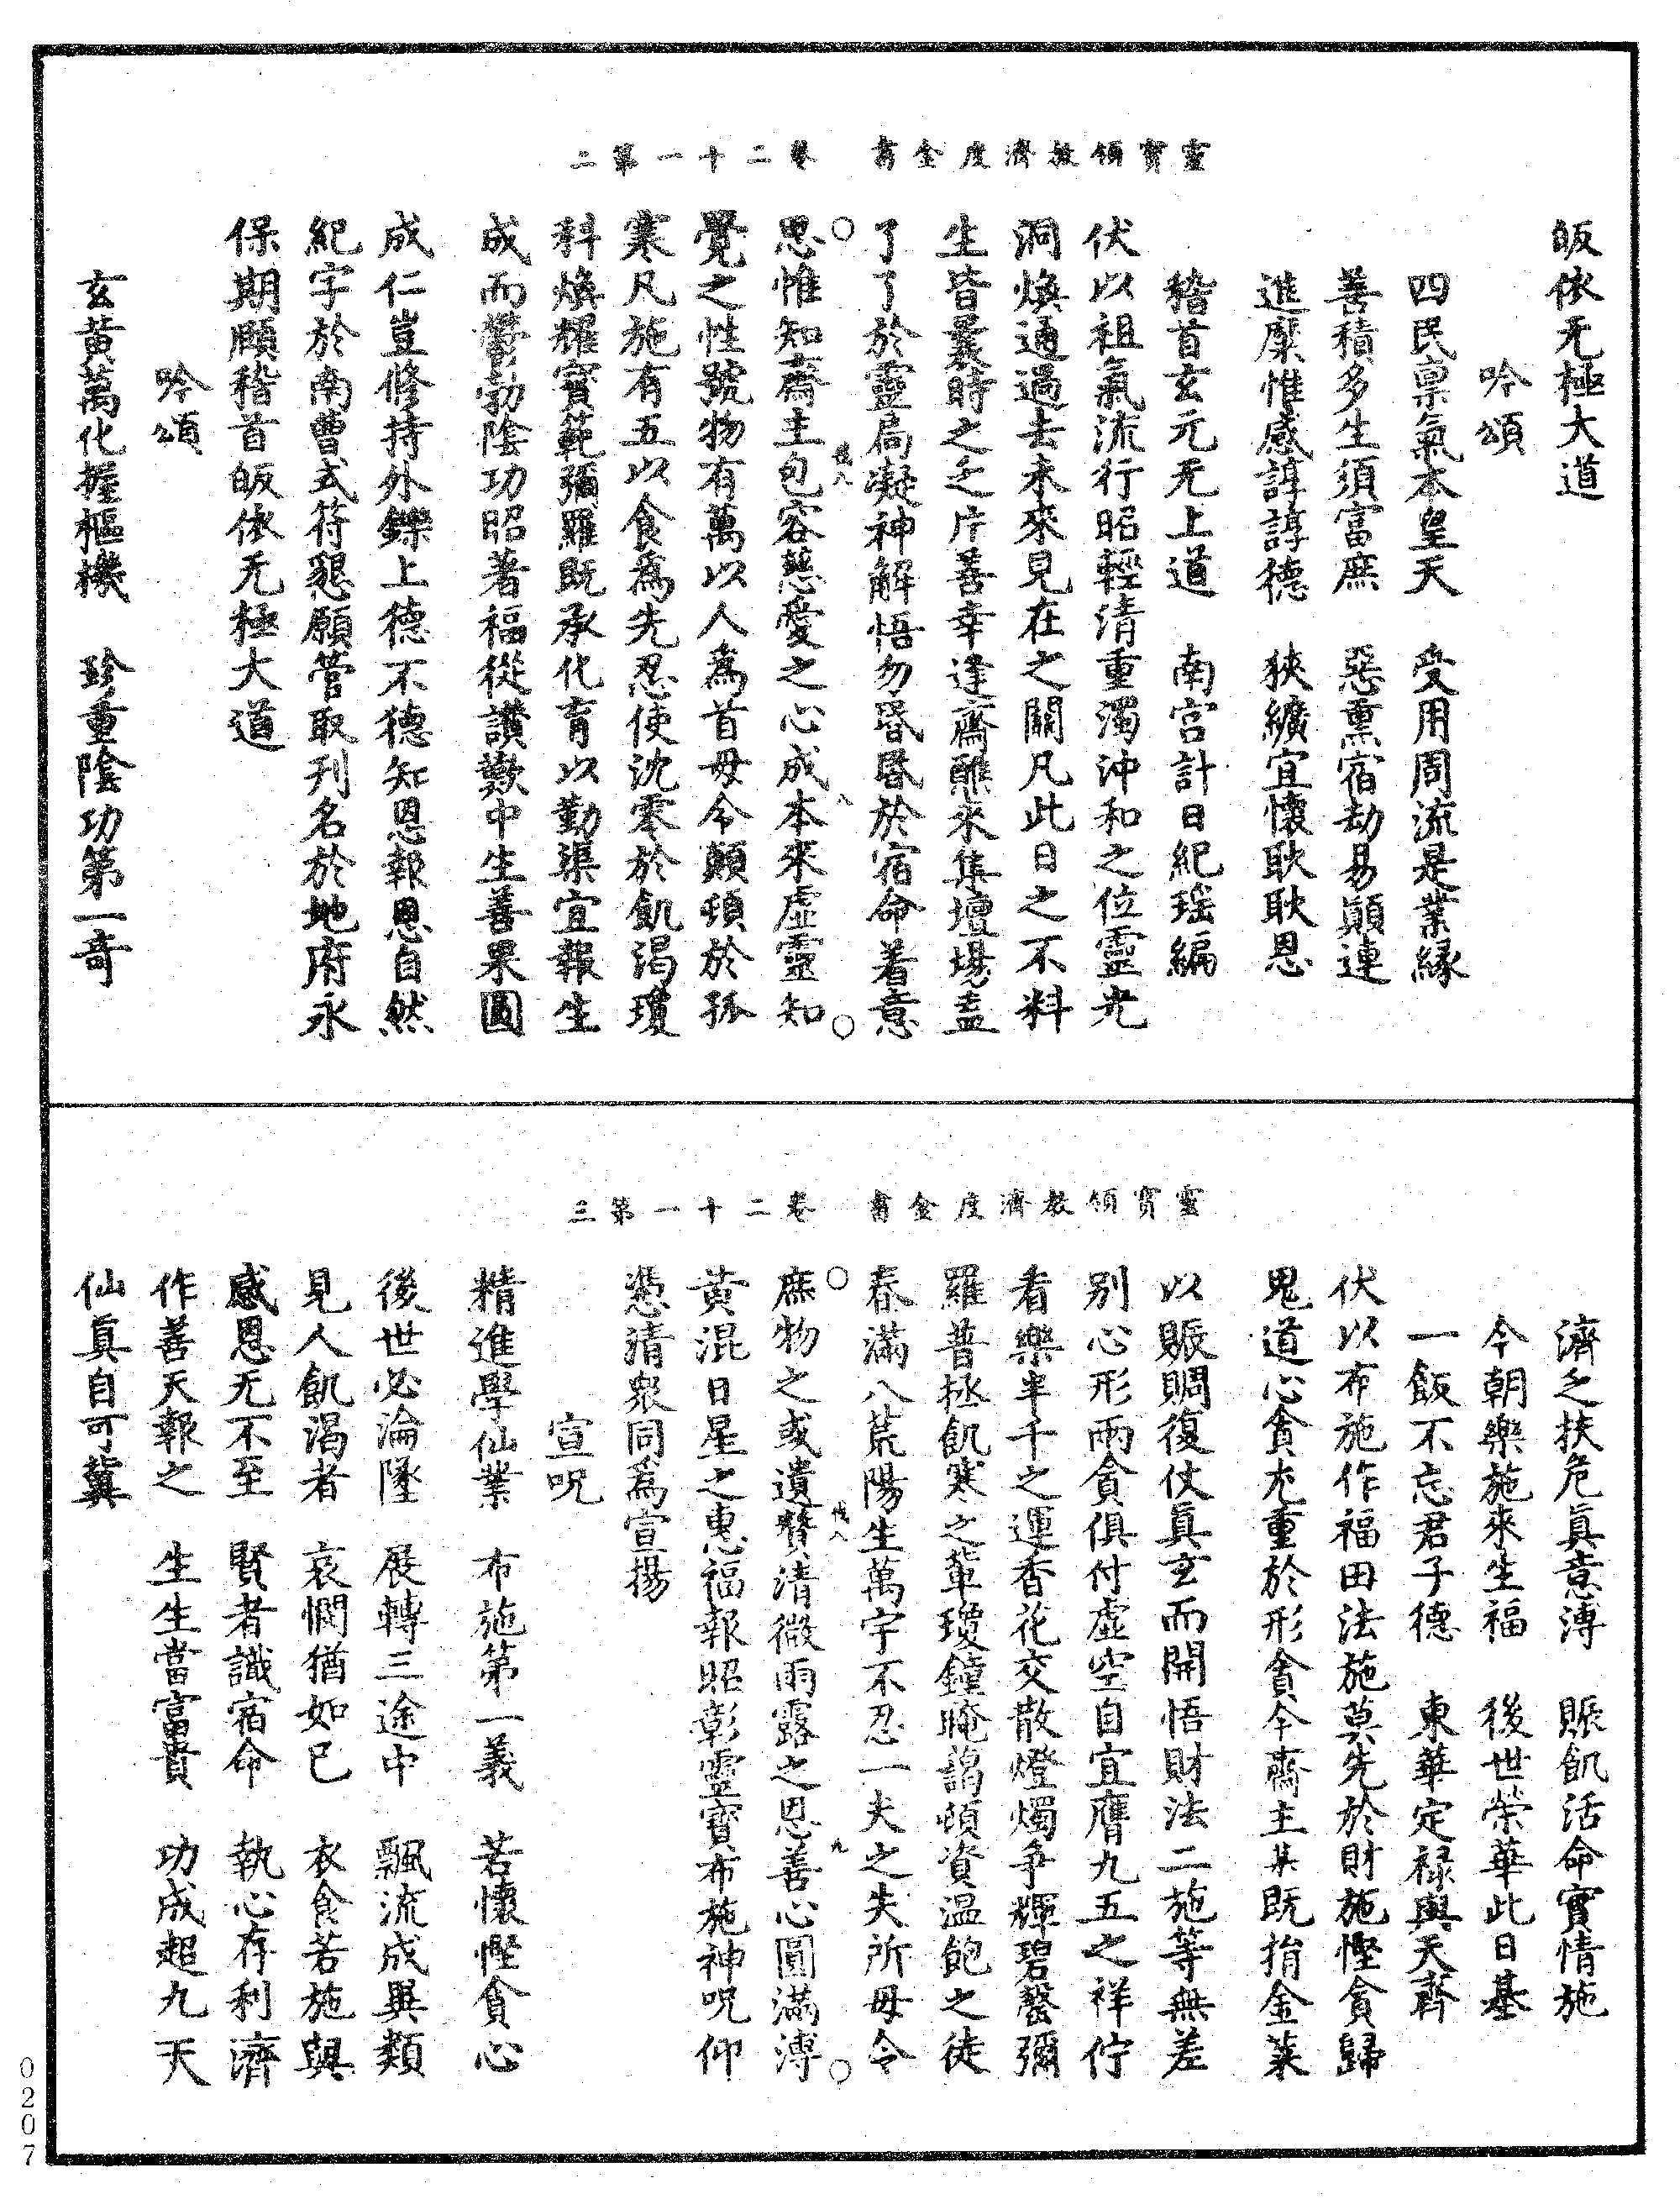 靈寶領教濟度金書　卷二十一第二
皈依无極大道
吟頌
四民禀氣本皇天　受用周流是業緣
善積多生須富庶　惡熏宿劫易顛連
進糜惟感諄諄德　挾纊宜懷耿耿恩
稽首玄元无上道　南宮計日紀瑶編
伏以祖氣流行昭輕清重濁沖和之位靈光
洞煥通過去未來見在之關凡此日之不料
生皆曩時之乏片善幸逢齋醮來集壇場盍
了了於靈局凝神解悟勿昏昏於宿命着意
思惟知齋主包容慈愛之心成本來虛靈知
覺之性號物有萬以人爲首毋令顛頓於孤
寒凡施有五以食爲先忍使沈零於飢渴瓊
科煥耀寳範彌羅既承化育以勤渠宜報生
成而鬱勃陰功昭著福從讚歎中生善果圓
成仁豈修持外鑠上德不德知恩報恩自然
紀字於南曹式符懇願管取刋名於地府永
保期頤稽首皈依无極大道
吟頌
玄黄萬化握樞機　珍重陰功第一奇
靈寶領教濟度金書　卷二十一第三
濟乏扶危眞意溥　賑飢活命實情施
今朝樂施來生福　後世榮華此日基
一飯不忘君子德　東華定禄與天齊
伏以布施作福田法施莫先於財施慳貪歸
鬼道心貪尤重於形貪今齋主某既捐金菓
以賑賙復仗眞玄而開悟財法二施等無差
别心形兩貪俱付虚空自宜膺九五之祥佇
看樂半千之運香花交散燈燭争輝碧磬彌
羅普拯飢寒之輩瓊鐘晻藹頓資温飽之徒
春滿八荒陽生萬宇不忍一夫之失所毋令
庶物之或遺贊清微雨露之恩善心圓滿溥
黄混日星之惠福報昭彰靈寳布施神呪仰
憑清衆同爲宣揚
宣呪
精進學仙業　布施第一義　若懷慳貪心
後世必淪墜　展轉三途中　飄流成異類
見人飢渴者　哀憫猶如已　衣食若施與
感恩无不至　賢者識宿命　執心存利濟
作善天報之　生生當富貴　功成超九天
仙眞自可冀
0207